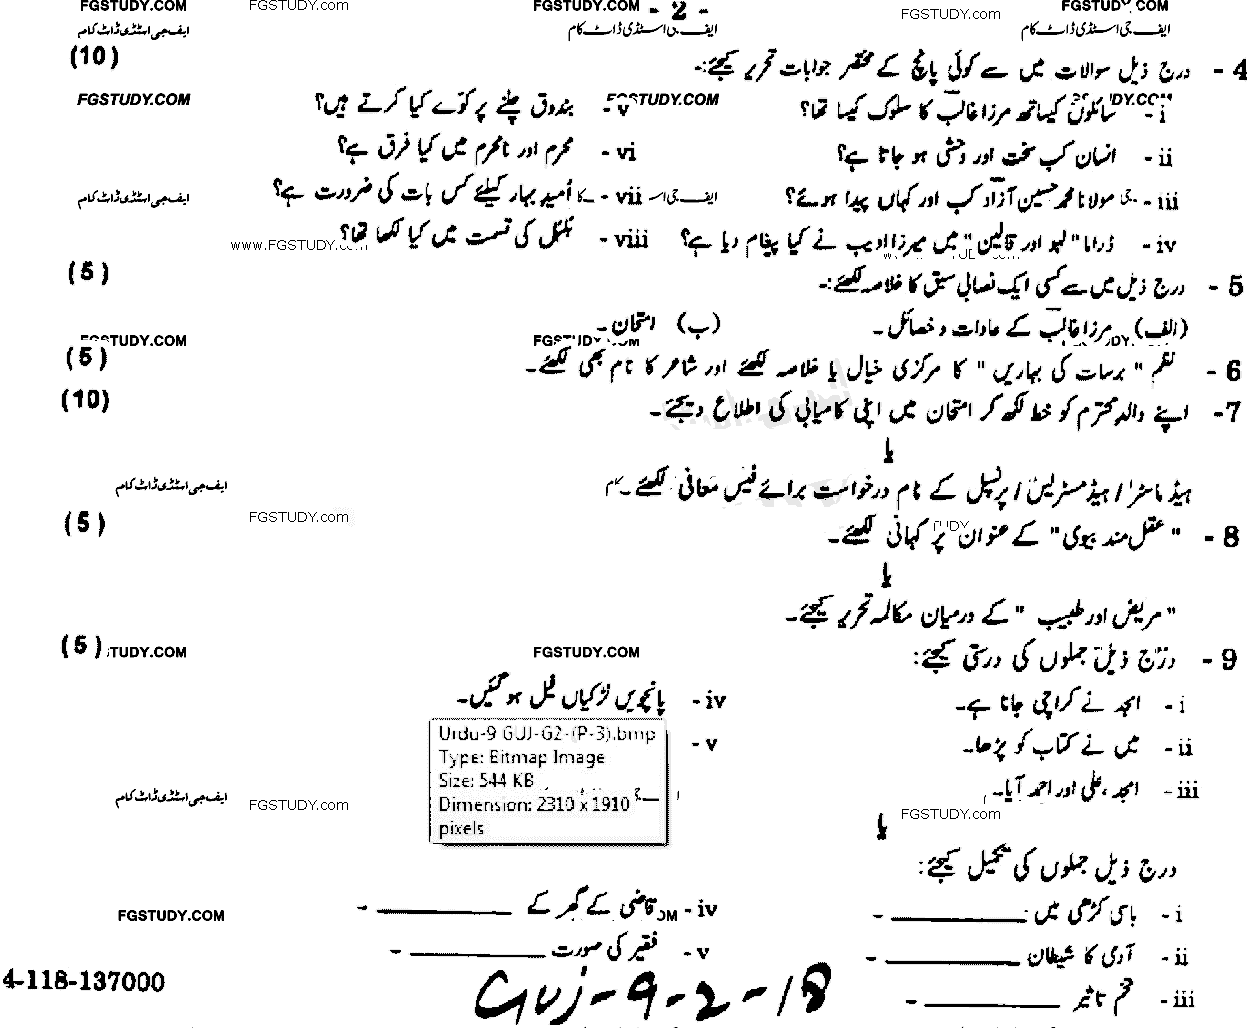 FGSTUDY.COM FGSTUDY.com FGSTUDY.COM - 2 - FGSTUDY.com FGSTUDY.COM
ایف جی اسٹڈی ڈاٹ کام ایف جی اسٹڈی ڈاٹ کام ایف جی اسٹڈی ڈاٹ کام
4 - درج ذیل سوالات میں سے کوئی پانچ کے مختصر جوابات تحریر کیجئے:- (10)
FGSTUDY.COM FGSTUDY.COM
i - سائلوں کیساتھ مرزا غالب کا سلوک کیسا تھا؟ v - بندوق چلنے پر کوّے کیا کرتے ہیں؟
ii - انسان کب سخت اور وحشی ہو جاتا ہے؟ vi - محرم اور نامحرم میں کیا فرق ہے؟
iii - مولانا محمد حسین آزاد کب اور کہاں پیدا ہوئے؟ vii - اُمید بہار کیلئے کس بات کی ضرورت ہے؟ ایف جی اسٹڈی ڈاٹ کام
iv - ڈراما "لہو اور قالین" میں میرزا ادیب نے کیا پیغام دیا ہے؟ viii - بُلبُل کی قسمت میں کیا لکھا تھا؟
www.FGSTUDY.com
5 - درج ذیل میں سے کسی ایک نصابی سبق کا خلاصہ لکھئے:- (5)
(الف) مرزا غالب کے عادات و خصائل۔ (ب) امتحان۔
FGSTUDY.COM FGSTUDY.COM
6 - نظم "برسات کی بہاریں" کا مرکزی خیال یا خلاصہ لکھئے اور شاعر کا نام بھی لکھئے۔ (5)
7- اپنے والد محترم کو خط لکھ کر امتحان میں اپنی کامیابی کی اطلاع دیجئے۔ (10)
یا
ہیڈ ماسٹر / ہیڈ مسٹریس / پرنسپل کے نام درخواست برائے فیس معافی لکھئے۔ ایف جی اسٹڈی ڈاٹ کام
8 - "عقل مند بیوی" کے عنوان پر کہانی لکھئے۔ FGSTUDY.com (5)
یا
"مریض اور طبیب" کے درمیان مکالمہ تحریر کیجئے۔
9 - درج ذیل جملوں کی درستی کیجئے: FGSTUDY.COM (5) TUDY.COM
i - امجد نے کراچی جانا ہے۔ iv - پانچویں لڑکیاں فیل ہو گئیں۔
ii - میں نے کتاب کو پڑھا۔ v -
iii - امجد، علی اور احمد آیا۔
Urdu-9 GUJ-G2-(P-3).bmp
Type: Bitmap Image
Size: 544 KB
Dimension: 2310 x 1910
pixels
ایف جی اسٹڈی ڈاٹ کام FGSTUDY.com FGSTUDY.com
یا
درج ذیل جملوں کی تکمیل کیجئے:
i - باسی کڑھی میں ________ - iv - قاضی کے گھر کے ________ -
FGSTUDY.COM
ii - آدمی کا شیطان ________ - v - فقیر کی صورت ________ -
iii - تخم تاثیر ________ -
4-118-137000
Guj-9-2-18